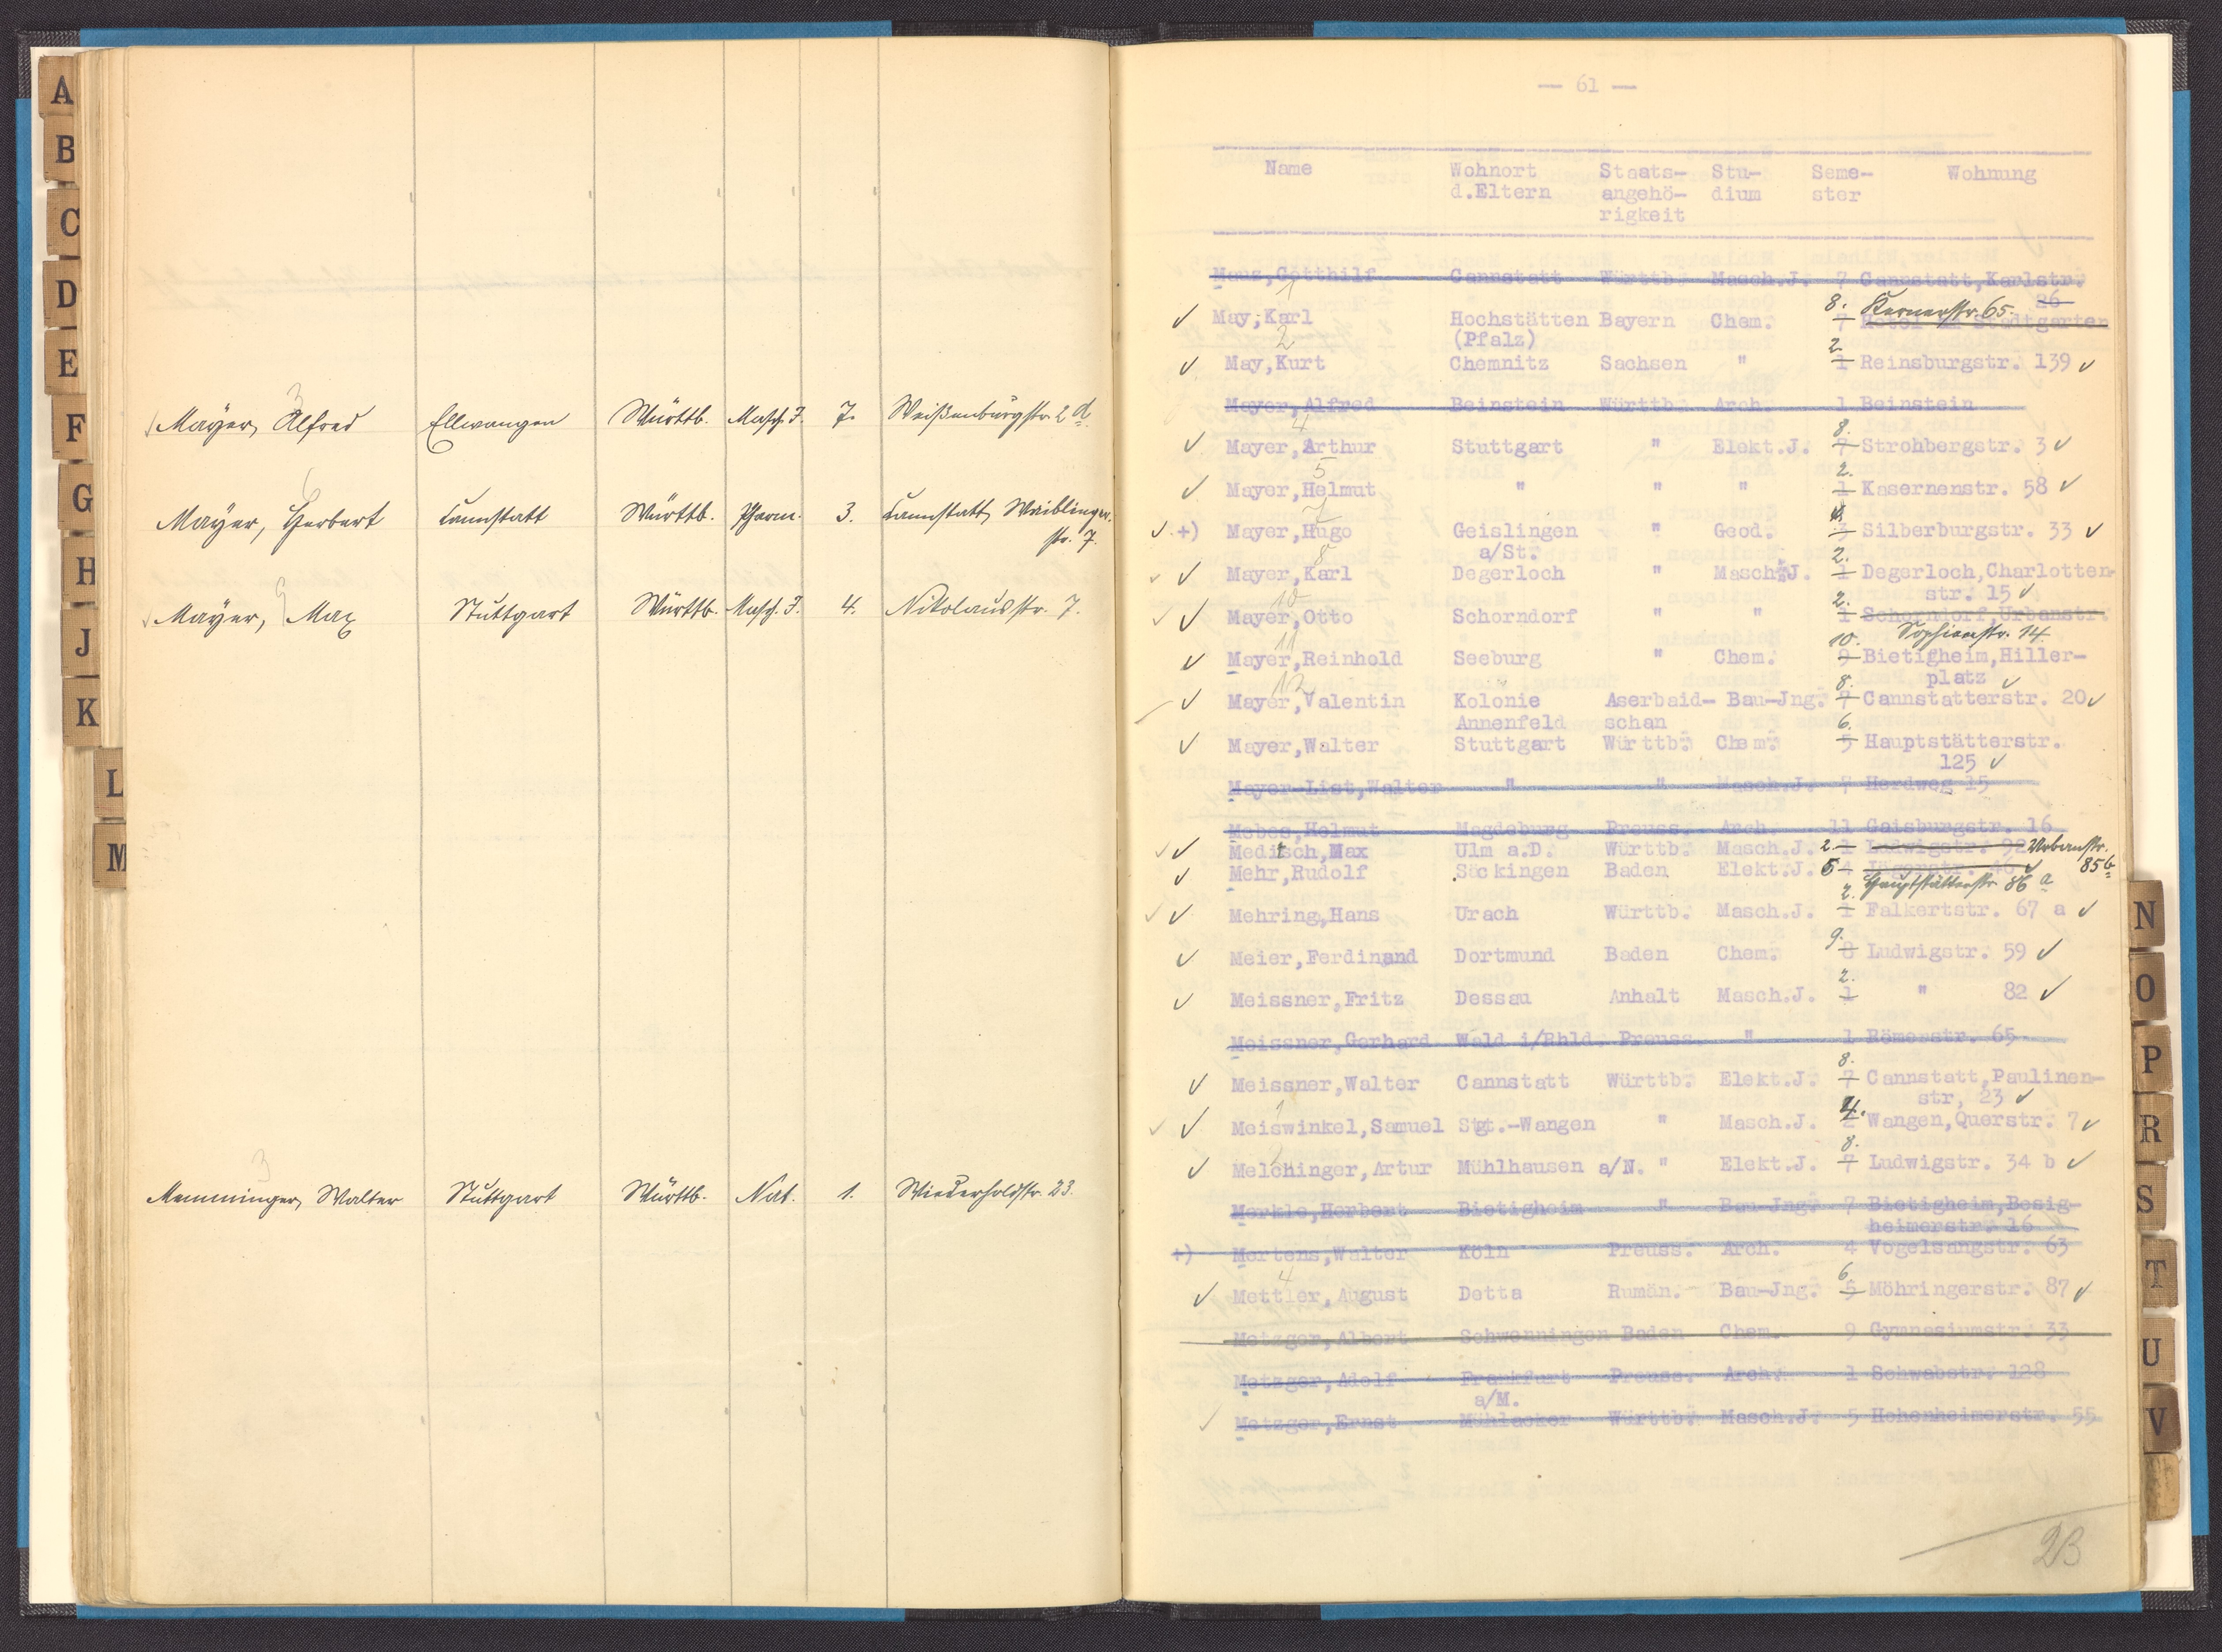 A
B
C
D
E
F
G
H
J
K
L
M
3
Mayer, Alfred Ellwangen Württb. Masch. J. 7. Weißenburgstr. 2 d.
6
Mayer, Herbert Cannstatt Württb. Pharm. 3. Cannstatt, Waiblinger-
str. 7.
9
Mayer, Max Stuttgart Württb. Masch. J. 4. Nikolausstr. 7.
3
Memminger, Walter Stuttgart Württb. Nat. 1. Wiederholdstr. 23.
— 61 —
Name Wohnort Staats- Stu- Seme- Wohnung
d.Eltern angehö- dium ster
rigkeit
Manz,Gotthilf Cannstatt Württb. Masch.J. 7 Cannstatt,Karlstr.
26
1 8. Kernerstr. 65.
May,Karl Hochstätten Bayern Chem. 7 Hotel Stadtgarten
(Pfalz)
2 2.
May,Kurt Chemnitz Sachsen " 1 Reinsburgstr. 139
Mayer,Alfred Beinstein Württb. Arch. 1 Beinstein
4 8.
Mayer,Arthur Stuttgart " Elekt.J. 7 Strohbergstr. 3
5 2.
Mayer,Helmut " " " 1 Kasernenstr. 58
7
+) Mayer,Hugo Geislingen " Geod. 3 Silberburgstr. 33
a/St.
8 2.
Mayer,Karl Degerloch " Masch.J. 1 Degerloch,Charlotten-
str. 15
10 2.
Mayer,Otto Schorndorf " " 1 Schorndorf,Urbanstr.
11 10. Sophienstr. 14.
Mayer,Reinhold Seeburg " Chem. 9 Bietigheim,Hiller-
platz
12 8.
Mayer,Valentin Kolonie Aserbaid- Bau-Jng. 7 Cannstatterstr. 20
Annenfeld schan
6.
Mayer,Walter Stuttgart Württb. Chem. 5 Hauptstätterstr.
125
Mayer-List,Walter " " Masch.J. 7 Herdweg 15
Mebes,Helmut Magdeburg Preuss. Arch. 11 Gaisburgstr. 16
Meditsch,Max Ulm a.D. Württb. Masch.J. 2. 1 Ludwigstr. 92 Urbanstr.
85 b
Mehr,Rudolf Säckingen Baden Elekt.J. 5 4 Jägerstr. 40
Hauptstätterstr. 86 a
2.
Mehring,Hans Urach Württb. Masch.J. 1 Falkertstr. 67 a
9.
Meier,Ferdinand Dortmund Baden Chem. 8 Ludwigstr. 59
2.
Meissner,Fritz Dessau Anhalt Masch.J. 1 " 82
Meissner,Gerhard Wald i/Rhld. Preuss. " 1 Römerstr. 65
8.
Meissner,Walter Cannstatt Württb. Elekt.J. 7 Cannstatt,Paulinen-
str, 23
1 4.
Meiswinkel,Samuel Stgt.-Wangen " Masch.J. Wangen,Querstr. 7
2 8.
Melchinger,Artur Mühlhausen a/N. " Elekt.J. 7 Ludwigstr. 34 b
Merkle,Herbert Bietigheim " Bau-Jng. 7 Bietigheim,Besig-
heimerstr. 16
+) Mertens,Walter Köln Preuss. Arch. 4 Vogelsangstr. 63
4 6.
Mettler,August Detta Rumän. Bau-Jng. 5 Möhringerstr. 87
Metzger,Albert Schwenningen Baden Chem. 9 Gymnasiumstr. 33
Metzger,Adolf Frankfurt Preuss. Arch. 1 Schwabstr. 128
a/M.
Metzger,Ernst Mühlacker Württb. Masch.J. 5 Hohenheimerstr. 55
23
N
O
P
R
S
T
U
V